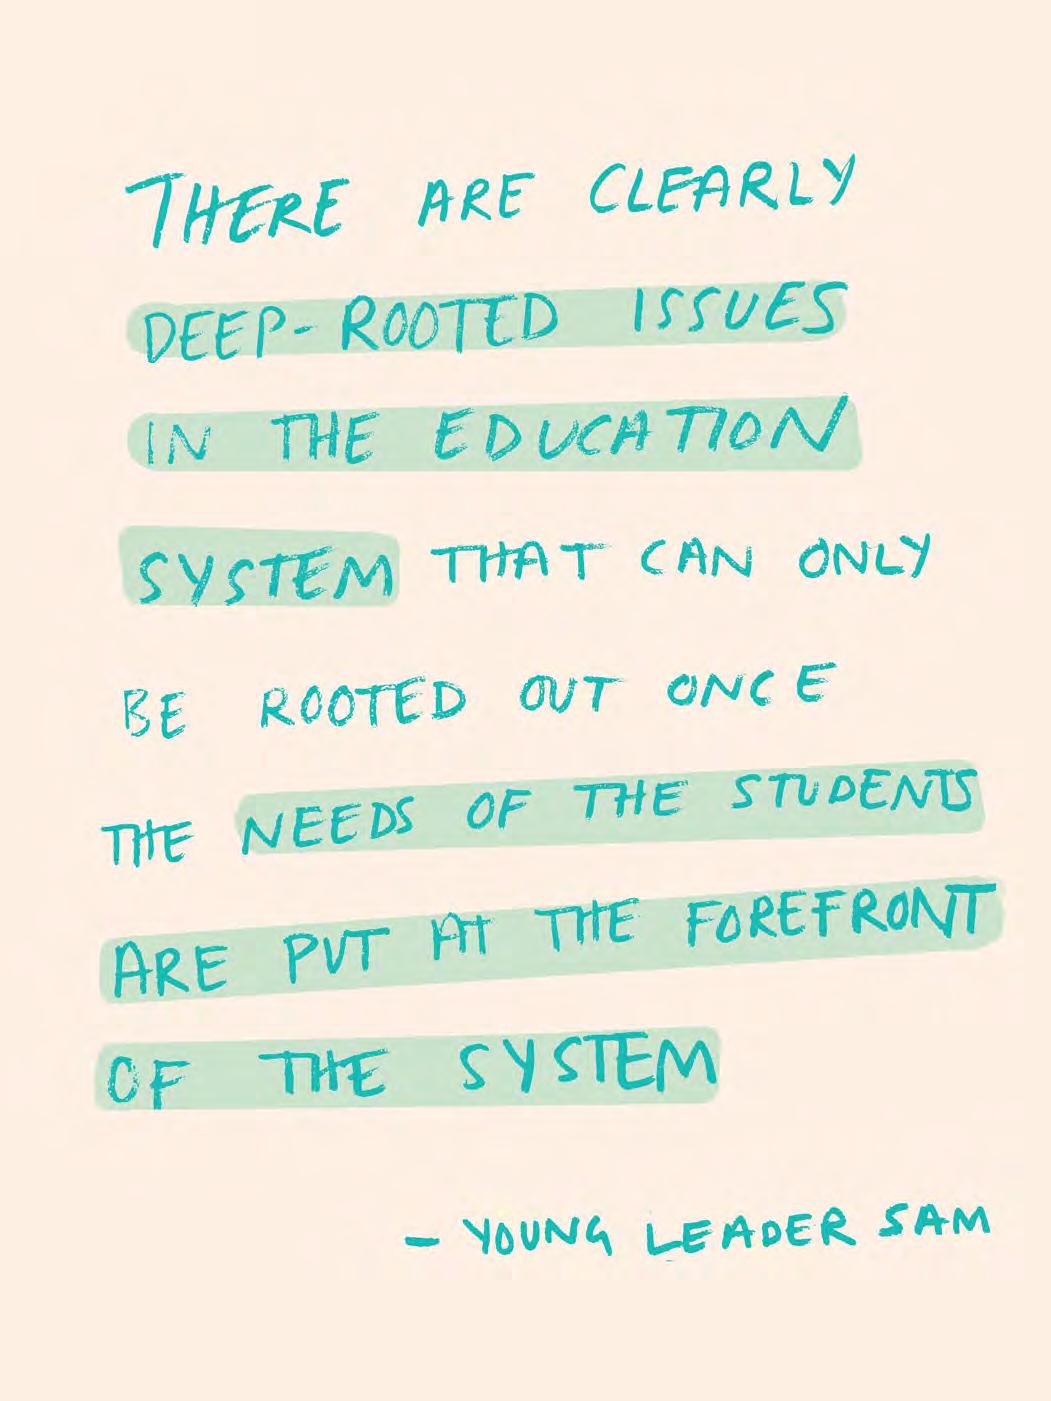 THERE ARE CLEARLY
DEEP-ROOTED ISSUES
IN THE EDUCATION
SYSTEM THAT CAN ONLY
BE ROOTED OUT ONCE
THE NEEDS OF THE STUDENTS
ARE PUT AT THE FOREFRONT
OF THE SYSTEM
- YOUNG LEADER SAM